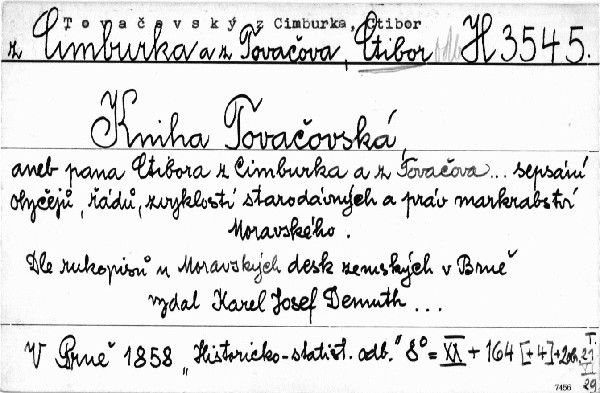 Tovačevský z Cimburka, Ctibor
z Cimburka a z Tovačova, Ctibor H 3545.
Kniha Tovačovská,
aneb pana Ctibora z Cimburka a z Tovačova... sepsání
obyčejů, řádů, zvyklostí starodávných a práv markrabství
Moravského.
Dle rukopisů u Moravských desk zemských v Brně
vydal Karel Josef Demuth ...
V Brně 1858 „Historicko-statist. odb." 8° = XX + 164 [+4] + 2ob.
T.
21
VI
29.
7456